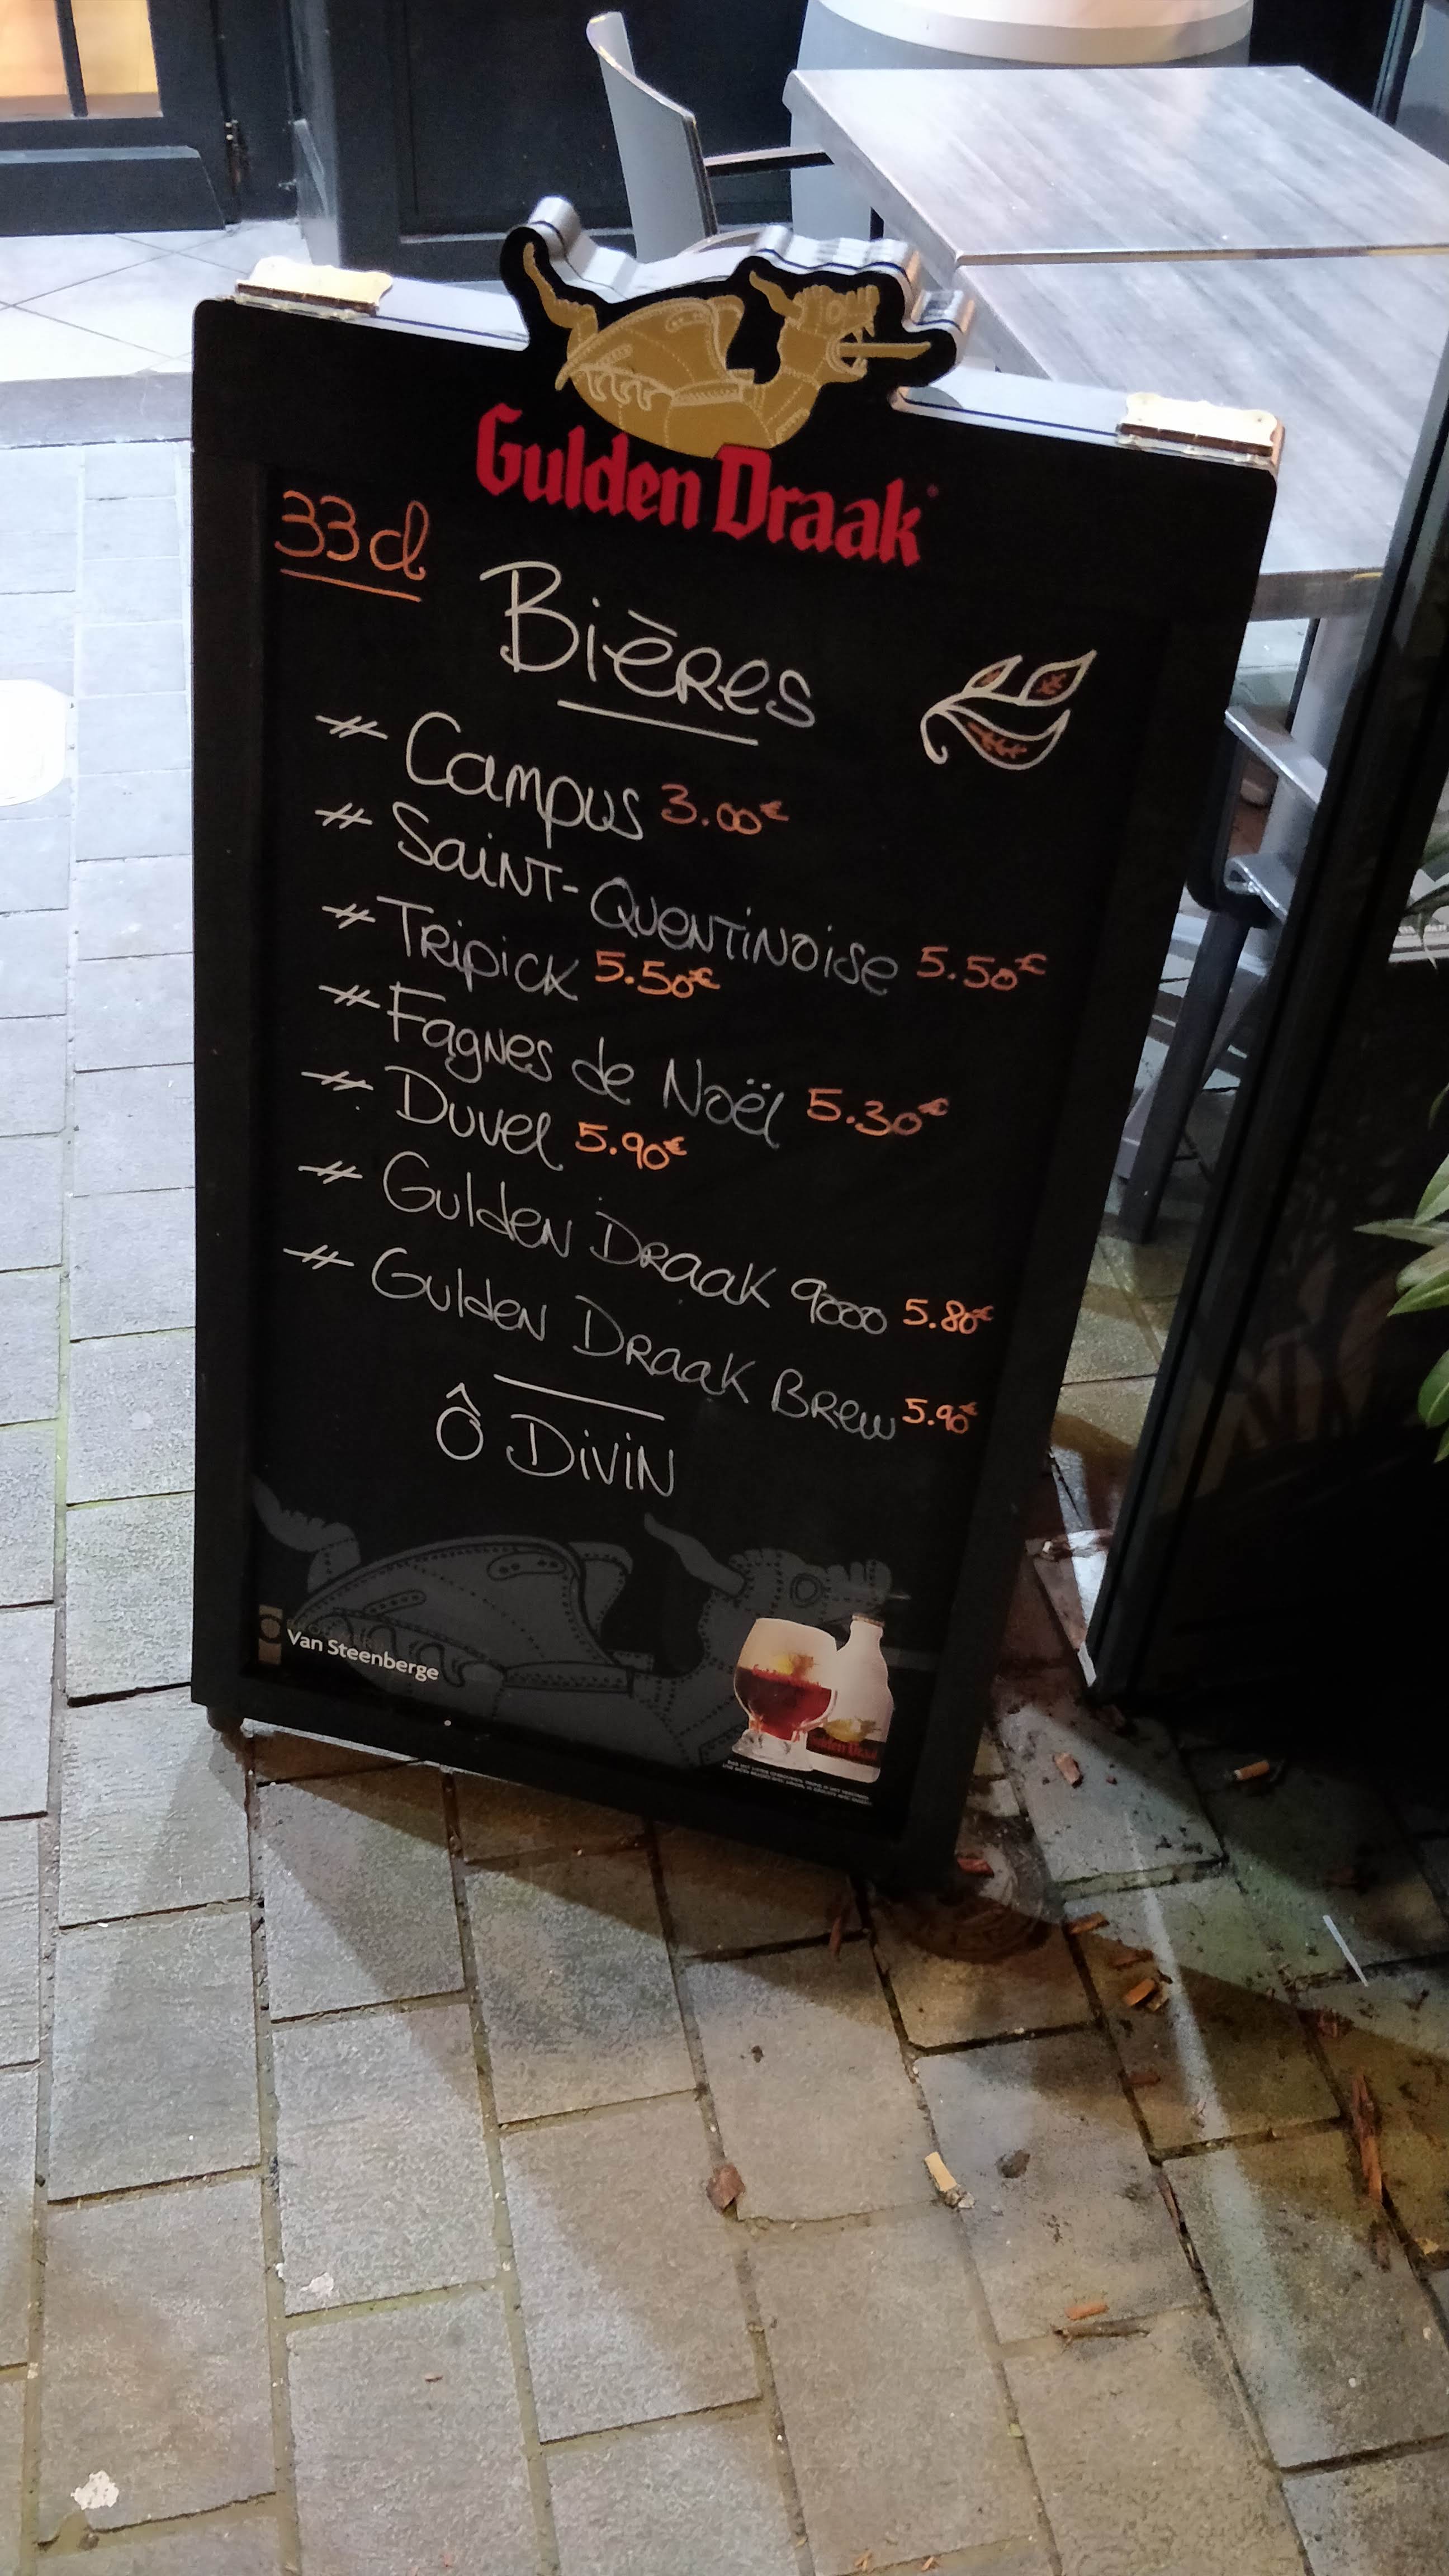 Gulden Draak
33cl
Bières
# Campus 3.00€
# Saint-Quentinoise 5.50€
# Tripick 5.50€
# Fagnes de Noël 5.30€
# Duvel 5.90€
# Gulden Draak 9000 5.80€
# Gulden Draak Brew 5.90€
Ô Divin
Van Steenberge
Gulden Draak